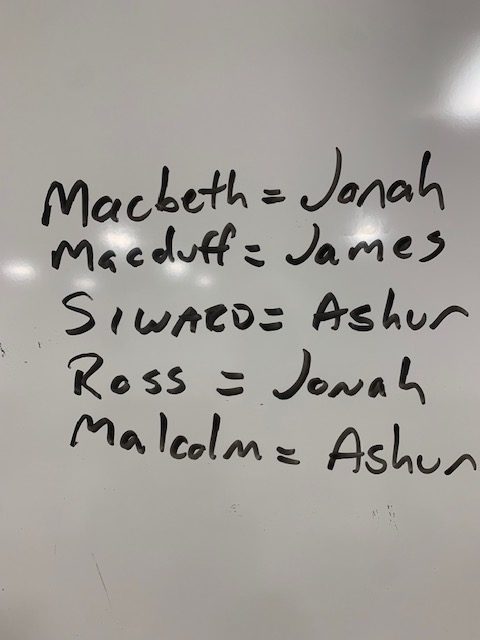 Macbeth = Jonah
Macduff = James
SIWARD = Ashur
Ross = Jonah
Malcolm = Ashur